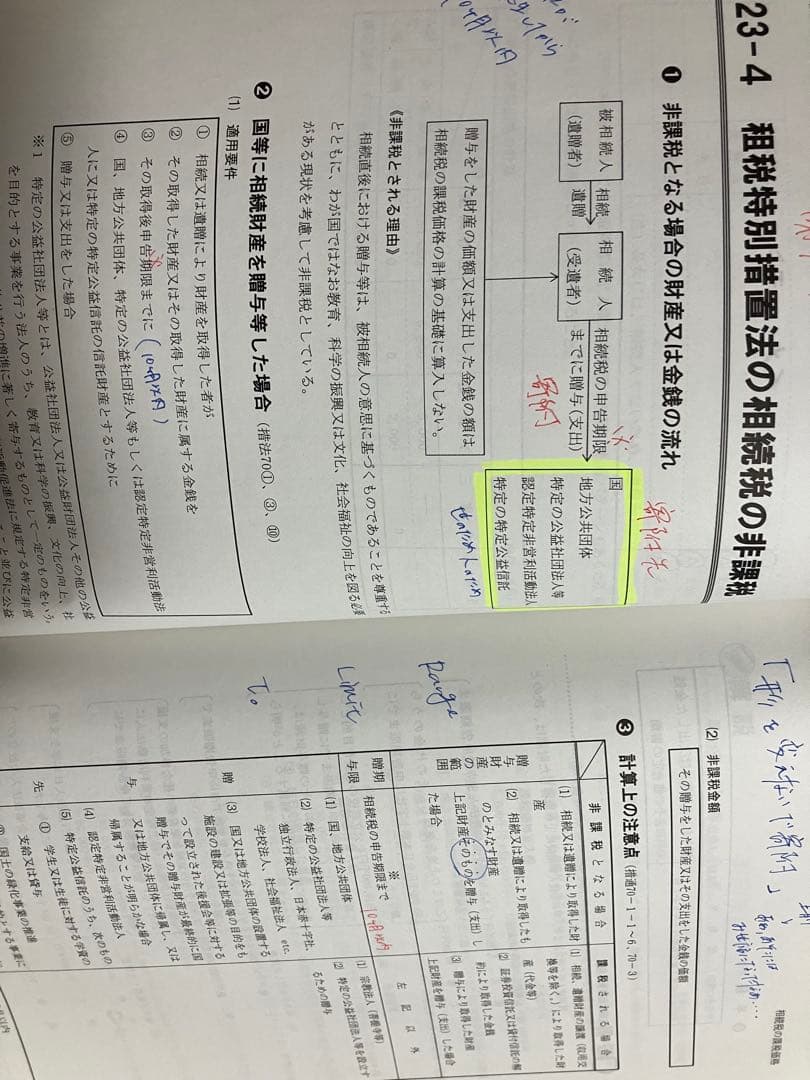 23-4 租税特別措置法の相続税の非課税
❶ 非課税となる場合の財産又は金銭の流れ
被相続人
(遺贈者)
相続
遺贈
相続人
(受遺者)
相続税の申告期限
までに贈与(支出)
寄附
寄附先
国
地方公共団体
特定の公益社団法人等
認定特定非営利活動法人
特定の特定公益信託
贈与をした財産の価額又は支出した金銭の額は
相続税の課税価格の計算の基礎に算入しない。
《非課税とされる理由》
相続直後における贈与等は、被相続人の意思に基づくものであることを尊重する
とともに、わが国ではなお教育、科学の振興又は文化、社会福祉の向上を図る必要
がある現状を考慮して非課税としている。
❷ 国等に相続財産を贈与等した場合 (措法70①、③、⑩)
(1) 適用要件
① 相続又は遺贈により財産を取得した者が
② その取得した財産又はその取得した財産に属する金銭を
③ その取得後申告期限までに (10ヶ月以内)
④ 国、地方公共団体、特定の公益社団法人等もしくは認定特定非営利活動法
人に又は特定の特定公益信託の信託財産とするために
⑤ 贈与又は支出をした場合
※1 特定の公益社団法人等とは、公益社団法人又は公益財団法人その他の公益
を目的とする事業を行う法人のうち、教育又は科学の振興、文化の向上、社
相続税の課税価格
「形を変えないで寄附」
(2) 非課税金額
その贈与をした財産又はその支出をした金銭の価額
❸ 計算上の注意点 (措通70-1-1~6、70-3)
非課税となる場合
課税される場合
Range
贈与財産の範囲
(1) 相続又は遺贈により取得した財
産
(2) 相続又は遺贈により取得したも
のとみなす財産
上記財産そのものを贈与(支出)し
た場合
(1) 相続、遺贈財産の譲渡(収用交
換等を除く。)により取得した財
産(代金等)
(2) 証券投資信託又は貸付信託の解
約により取得した金銭
(3) 贈与により取得した財産
上記財産を贈与(支出)した場合
Limit
贈与期限
※
相続税の申告期限まで
10ヶ月以内
左記以外
To
贈与先
(1) 国、地方公共団体
(2) 特定の公益社団法人等
独立行政法人、日本赤十字社、
学校法人、社会福祉法人 etc.
(3) 国又は地方公共団体の設置する
施設の建設又は拡張等の目的をも
って設立された後援会等に対する
贈与でその贈与財産が最終的に国
又は地方公共団体に帰属し、又は
帰属することが明らかな場合
(4) 認定特定非営利活動法人
(5) 特定公益信託のうち、次のもの
① 学生又は生徒に対する学資の
支給又は貸与
② 国土の緑化事業の推進
(1) 宗教法人(菩提寺等)
(2) 特定の公益社団法人等を設立す
るための贈与